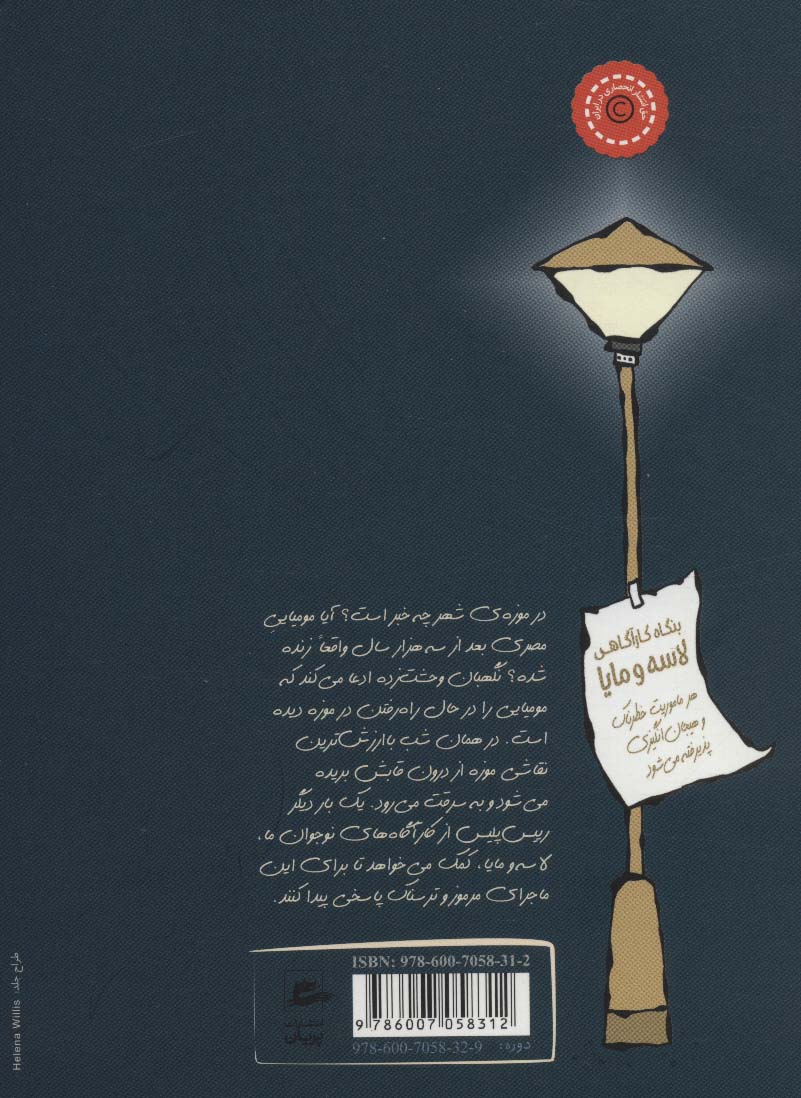 حق انتشار انحصاری در ایران
©
بنگاه کارآگاهی
لاسه و مایا
هر ماموریت خطرناک
و هیجان‌انگیزی
پذیرفته می‌شود
در موزه‌ی شهر چه خبر است؟ آیا مومیایی
مصری بعد از سه هزار سال واقعاً زنده
شده؟ نگهبان وحشت‌زده ادعا می‌کند که
مومیایی را در حال راه‌رفتن در موزه دیده
است. در همان شب باارزش‌ترین
نقاشی موزه از درون قابش بریده
می‌شود و به سرقت می‌رود. یک بار دیگر
رییس‌پلیس از کارآگاه‌های نوجوان ما،
لاسه‌و مایا، کمک می‌خواهد تا برای این
ماجرای مرموز و ترسناک پاسخی پیدا کنند.
ISBN: 978-600-7058-31-2
9 786007 058312
دوره: 978-600-7058-32-9
انتشارات
پریان
طراح جلد: Helena Willis